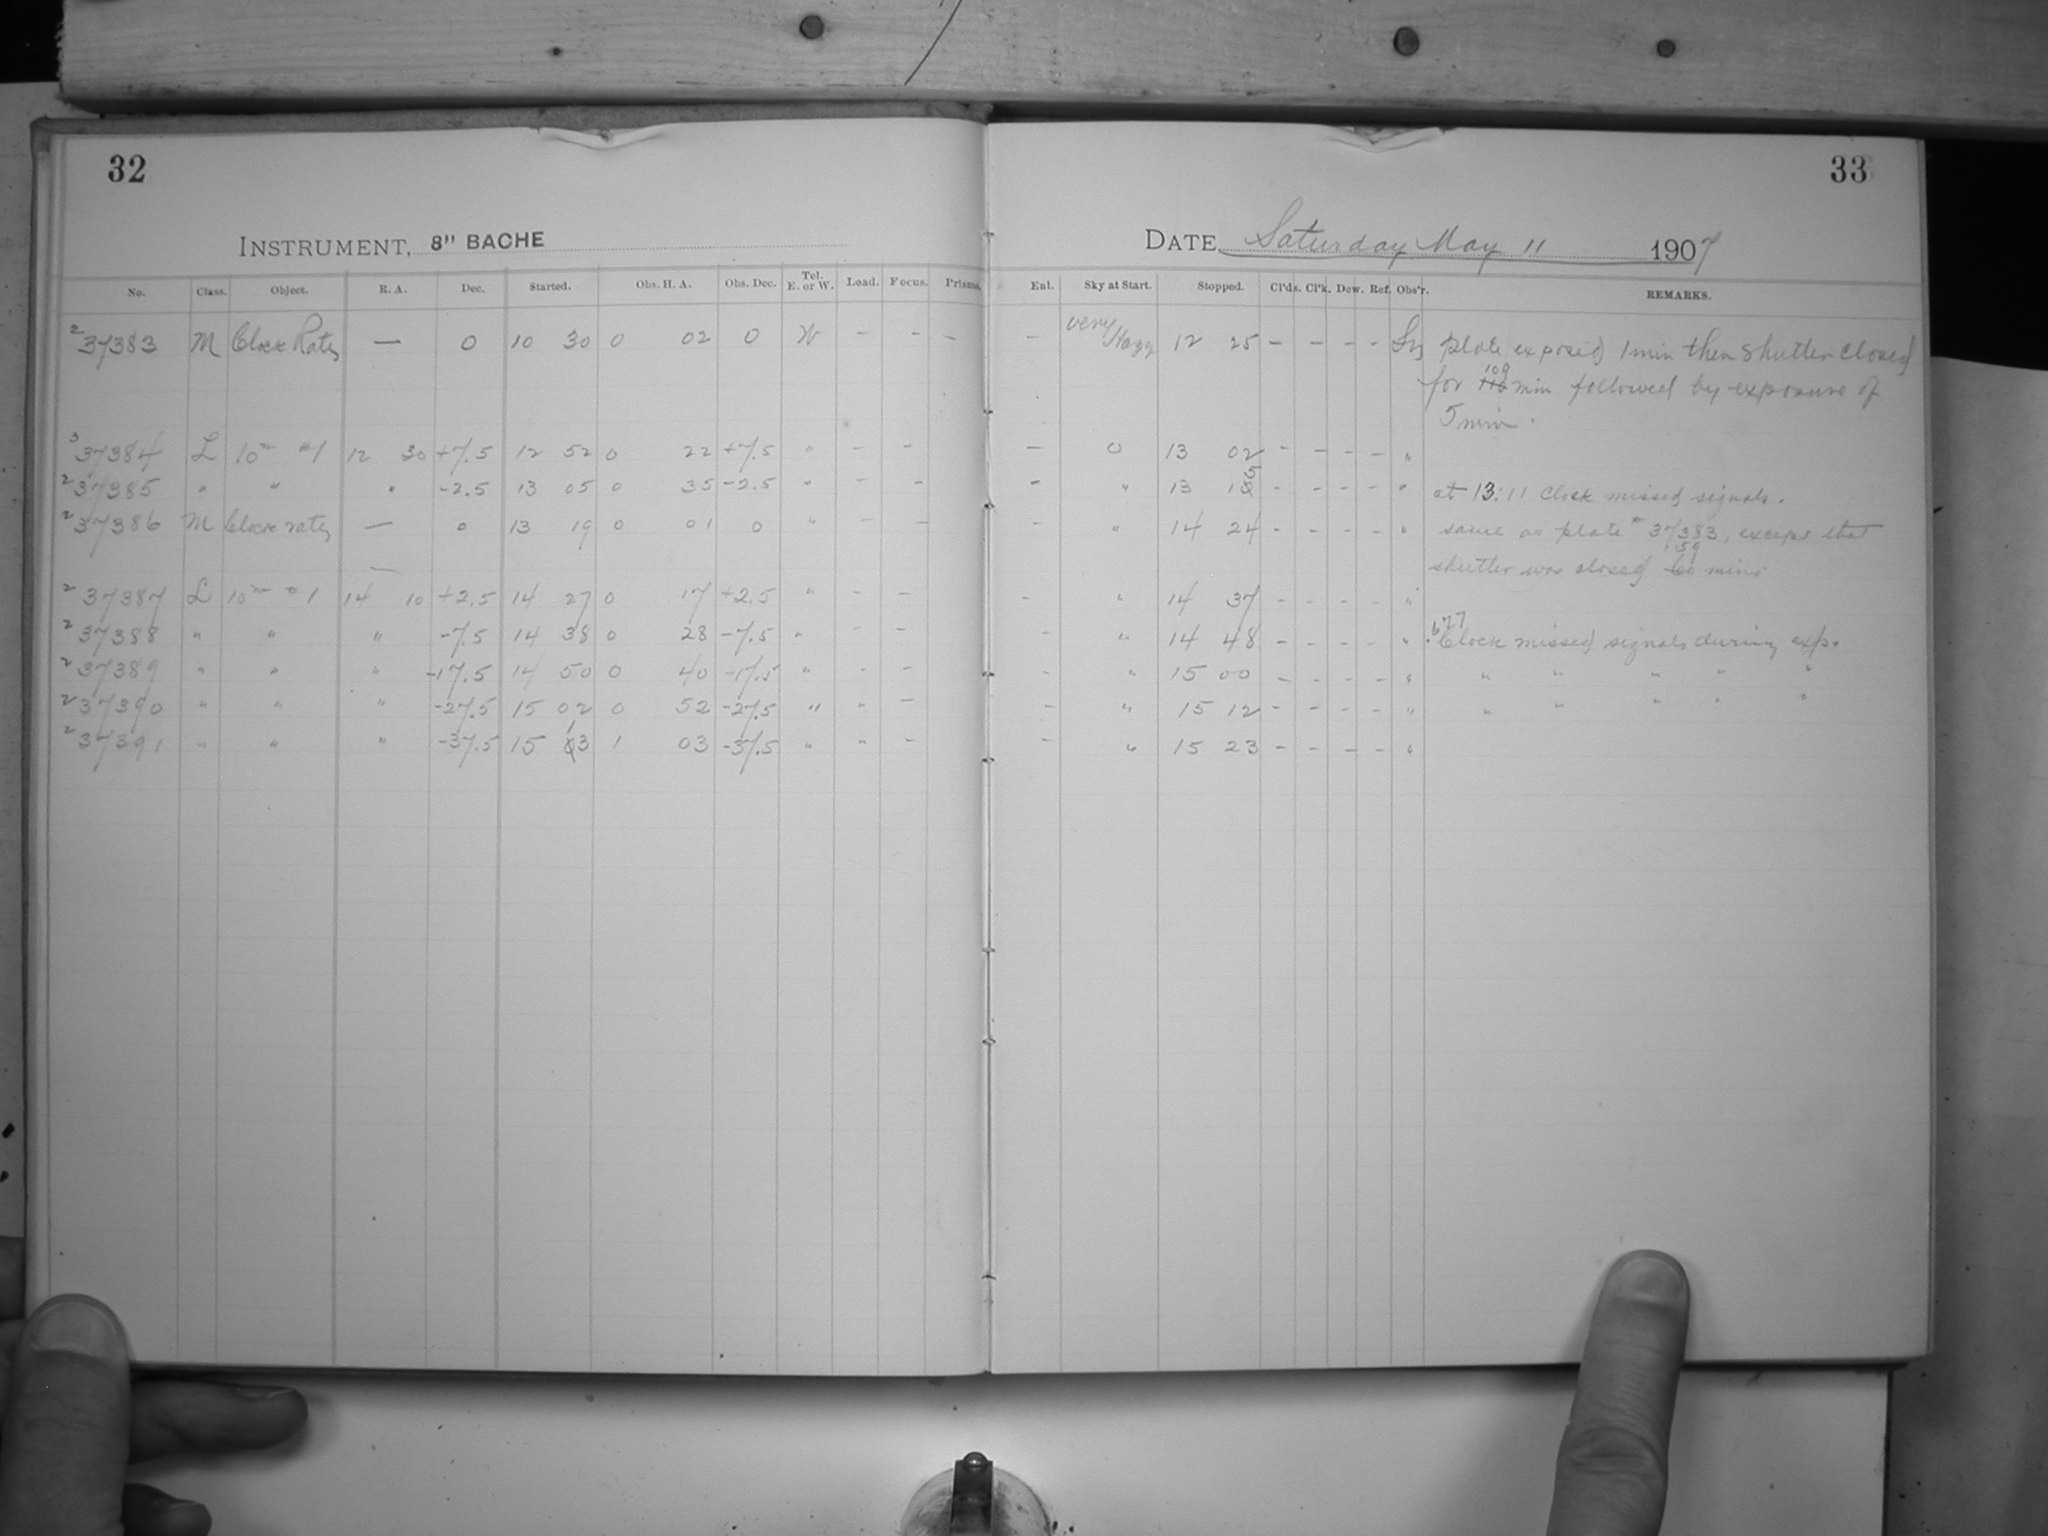 32
33
INSTRUMENT, 8" BACHE
DATE Saturday May 11 1907
No. Class. Object. R. A. Dec. Started. Obs. H. A. Obs. Dec. Tel. E. or W. Load. Focus. Prisms. Enl. Sky at Start. Stopped. Cl'ds. Cl'k. Dew. Ref. Obs'r. REMARKS.
2 37383 M Clock Rates — 0 10 30 0 02 0 W - - - - very Hazy 12 25 - - - - plate exposed 1 min then shutter closed
for 109 min followed by exposure of
5 min.
3 37384 L 10m #1 12 30 +7.5 12 52 0 22 +7.5 " - - - 0 13 02 - - - - "
2 37385 " " " -2.5 13 05 0 35 -2.5 " - - - " 13 15 - - - - " at 13:11 clock missed signals.
2 37386 M Clock rates — 0 13 19 0 01 0 " - - - " 14 24 - - - - " same as plate # 37383, except that
shutter was closed 59 mins
2 37387 L 10m #1 14 10 +2.5 14 27 0 17 +2.5 " - - - " 14 37 - - - - "
2 37388 " " " -7.5 14 38 0 28 -7.5 " - - - " 14 48 - - - - " Clock missed signals during exp.
2 37389 " " " -17.5 14 50 0 40 -17.5 " - - - " 15 00 - - - - " " " " " "
2 37390 " " " -27.5 15 02 0 52 -27.5 " " - - " 15 12 - - - - " " " " " "
2 37391 " " " -37.5 15 13 1 03 -37.5 " " - - " 15 23 - - - - "